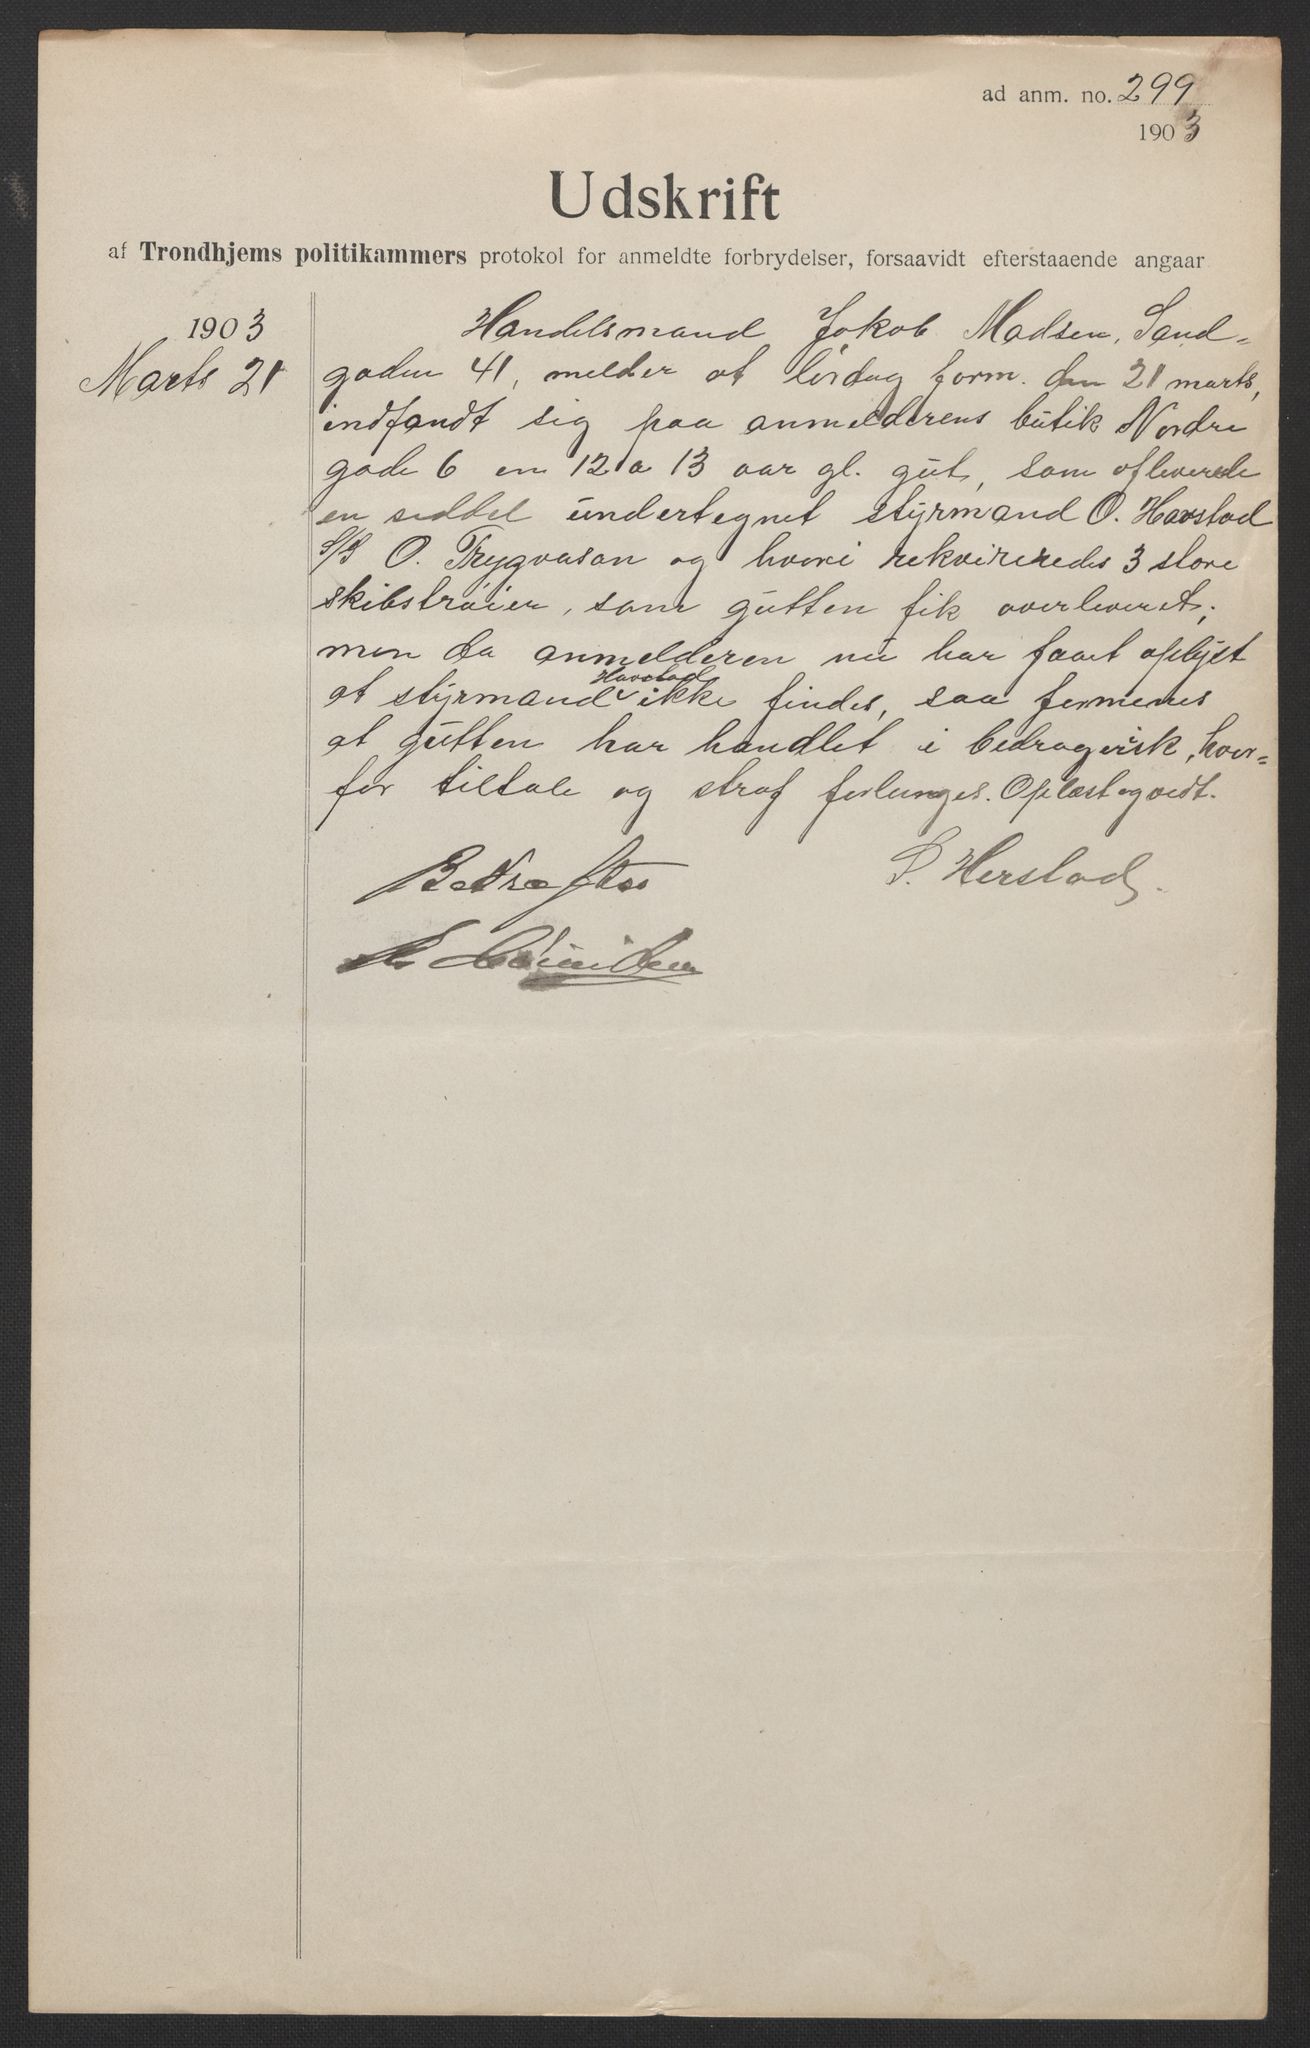 ad anm. no. 299
1903
Udskrift
af Trondhjems politikammers protokol for anmeldte forbrydelser, forsaavidt efterstaaende angaar
1903
Marts 21
Handelsmand Jakob Madsen, Sand-
gaden 41, melder at lørdag form. den 21 marts,
indfandt sig paa anmelderens butik Nordre
gade 6 en 12 a 13 aar gl. gut, som afleverede
en seddel undertegnet styrmand O. Havstad
S/S O. Trygvason og hvori rekvireredes 3 store
skibstrøier, som gutten fik overleveret;
men da anmelderen nu har faaet oplyst
at styrmand Havstad ikke findes, saa formenes
at gutten har handlet i bedragerisk, hvor-
for tiltale og straf forlanges. Oplæst og vedt.
Bekræftes
S. Herstad.